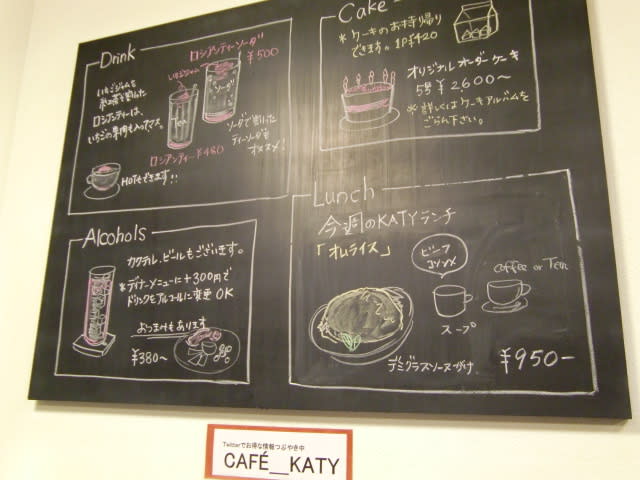 Drink
ロシアンティーソーダ
¥500
いちごジャム
いちごジャムを
紅茶で割った
ロシアンティーは、
いちごの果肉も入ってマス。
Tea
ソーダ
ソーダで割った
ティーソーダも
オススメ!
ロシアンティー ¥480
HOTもできます!!
Cake
*ケーキのお持ち帰り
できます。1P¥420
オリジナルオーダーケーキ
5号¥2600〜
※詳しくはケーキアルバムを
ごらん下さい。
Alcohols
カクテル、ビールもございます。
*ディナーメニューに+300円で
ドリンクをアルコールに変更OK
おつまみもあります
¥380〜
Lunch
今週のKATYランチ
「オムライス」
ビーフ
コンソメ
スープ
coffee or Tea
デミグラスソースがけ
¥950-
Twitterでお得な情報つぶやき中
CAFÉ__KATY